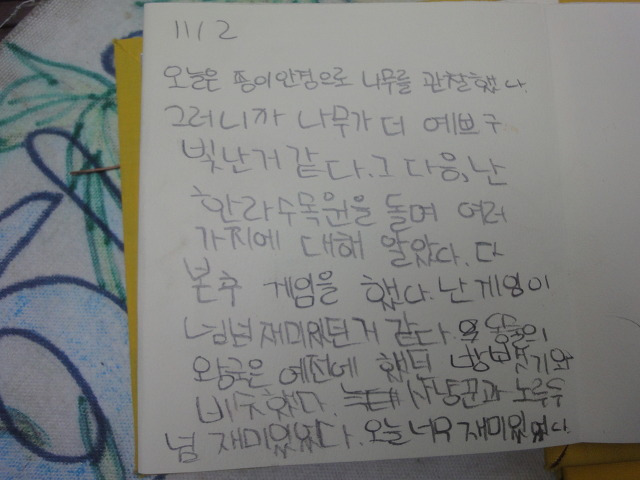 11/2
오늘은 종이안경으로 나무를 관찰했다.
그러니까 나무가 더 예쁘구
빛난거 같다. 그 다음, 난
한라수목원을 돌며 여러
가지에 대해 알았다. 다
본후 게임을 했다. 난 게임이
넘넘 재미있던거 같다.
왕국은 예전에 했던
비슷했다. 사냥꾼과 노루두
넘 재미있었다. 오늘 너무 재미있었다.